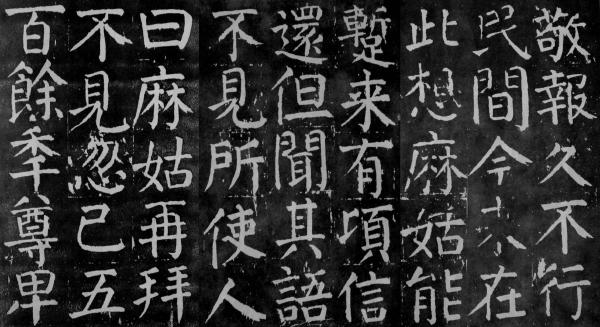 敬報久不行
民間今来在
此想麻姑能
蹔来有頃信
還但聞其語
不見所使人
曰麻姑再拜
不見忽已五
百餘秊尊卑